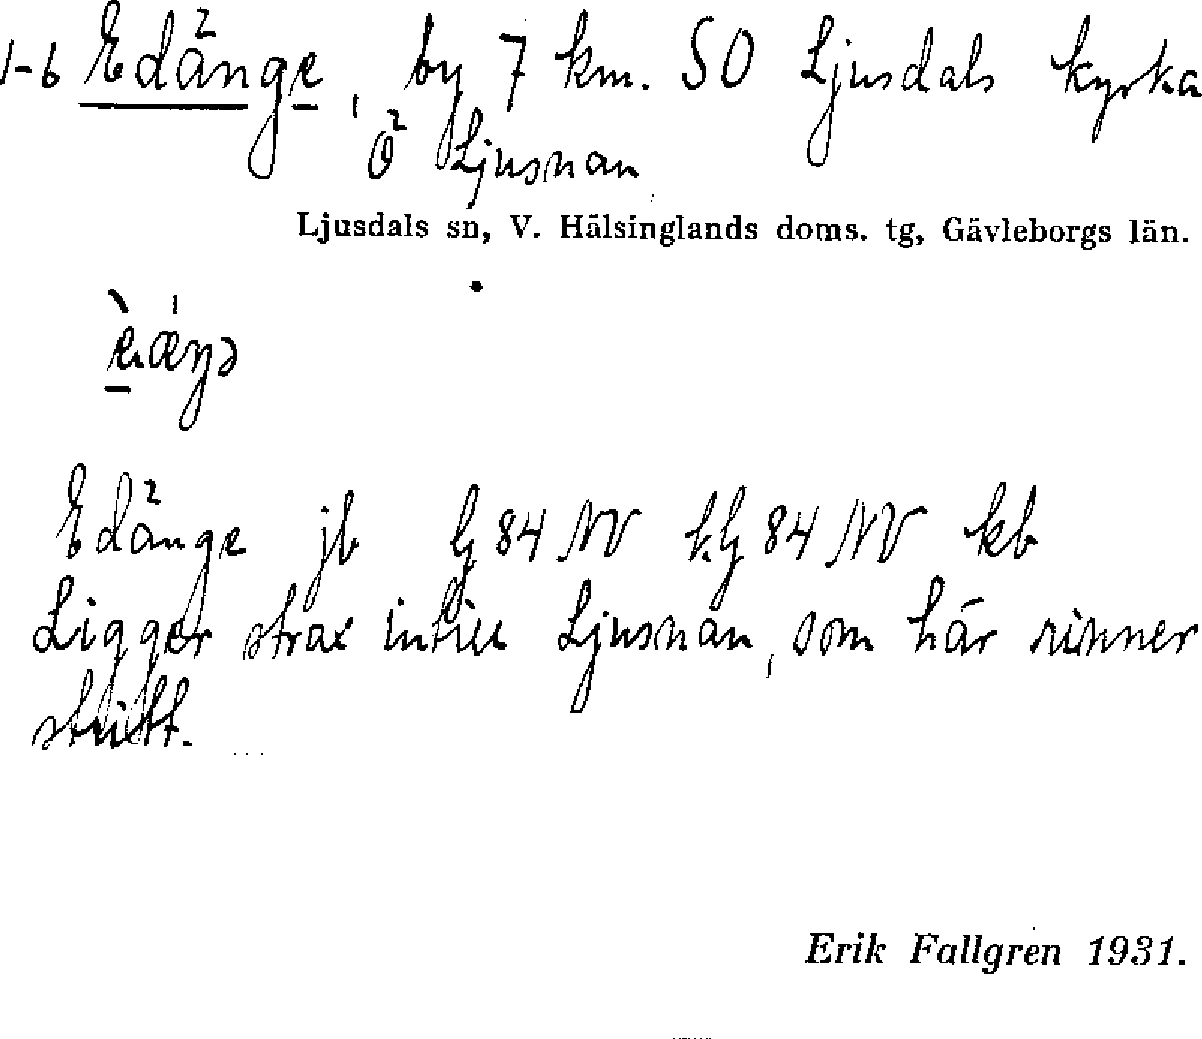 1-6 Edänge, by 7 km. SO Ljusdals kyrka
Ö Ljusnan
Ljusdals sn, V. Hälsinglands doms. tg, Gävleborgs län.
Edänge jb G 84 NV k.G 84 NV kb
Ligger strax intill Ljusnan, som här rinner
stritt.
Erik Fallgren 1931.